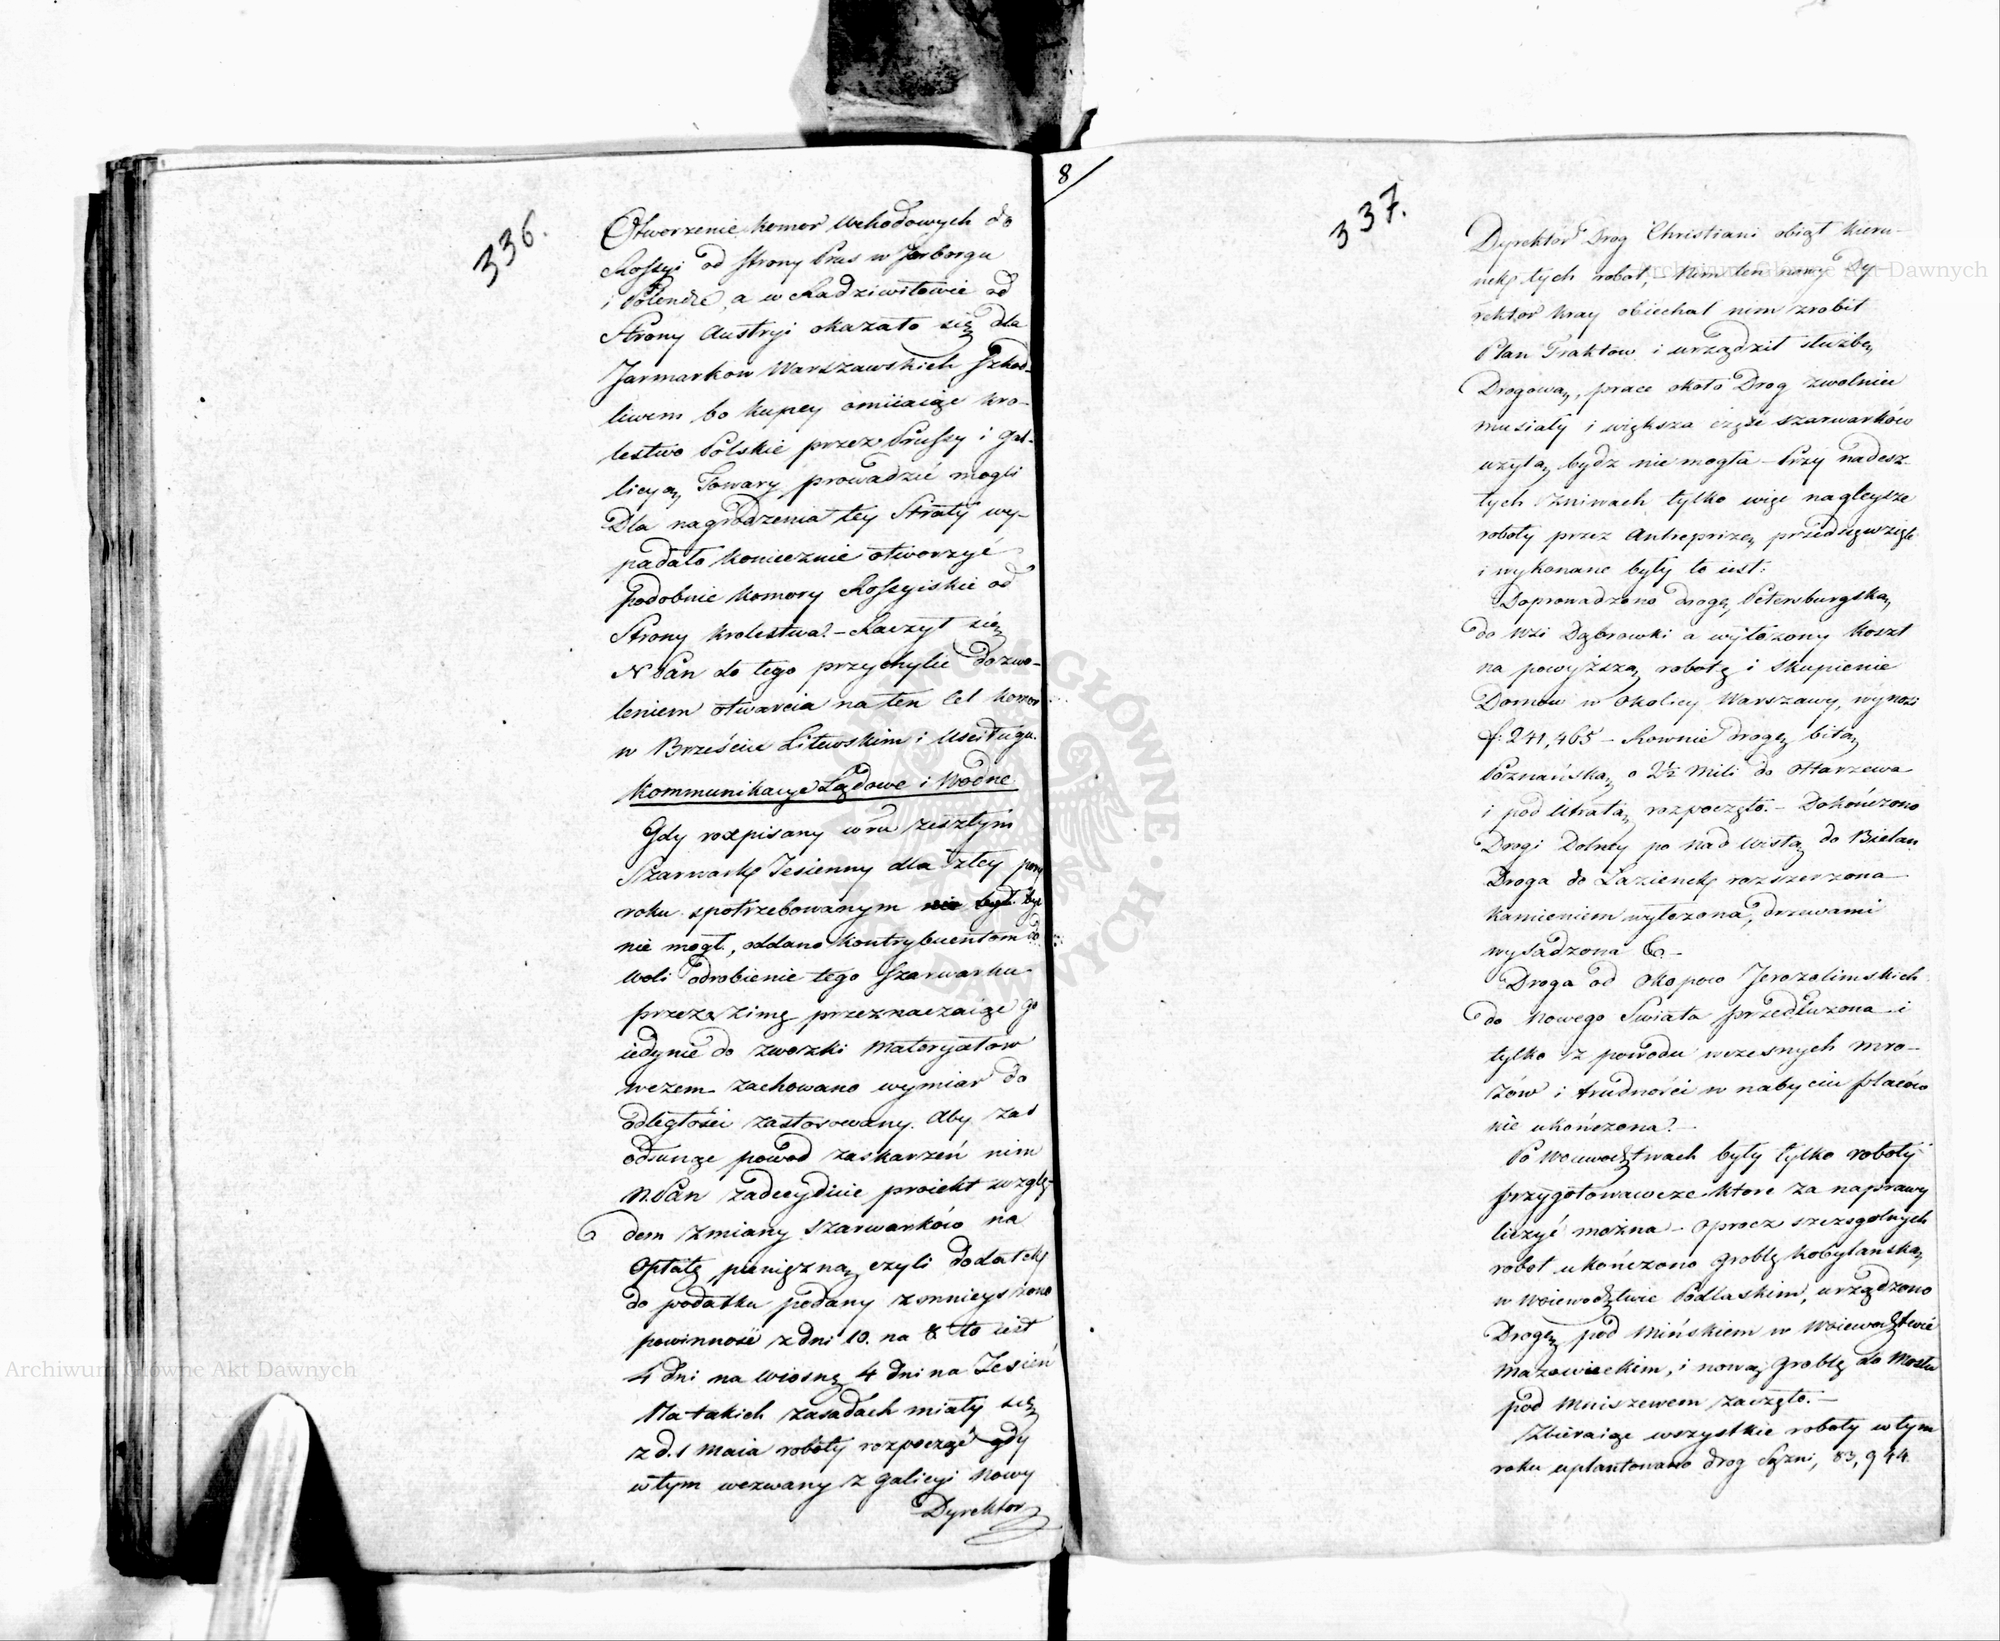 336.
Otworzenie komor wchodowych do
Rossyi od strony Prus w Jorborgu
i Polendze, a w Radziwiłowie od
Strony Austryi okazało się dla
Jarmarkow Warszawskich szkod-
liwem bo kupcy omiiaiąc Kro-
lestwo Polskie przez Prussy i Gal-
licyą Towary prowadzić mogli
Dla nagrodzenia tey Straty wy-
padało koniecznie otworzyć
podobnie komory Rossyiskie od
Strony Krolestwa. – Raczył się
N Pan do tego przychylić dozwo-
leniem otwarcia na ten cel komor
w Brześciu Litewskim i Usciługu.
Kommunikacye Lądowe i Wodne
Gdy rozpisany w ru zeszłym
Szarwark Jesienny dla złey pory
roku spotrzebowanym być
nie mogł, oddano kontrybuentom do
woli odrobienie tego Szarwarku
przez zimę przeznaczaiąc go
iedynie do zwozki Materyałow
wczem zachowano wymiar do
odległości zastosowany. Aby zaś
odsunąć powod zaskarzeń nim
N. Pan zadecyduie proiekt wzglę-
dem zmiany szarwarków na
Opłatę pienięzną czyli dodatek
do podatku podany zmnieyszono
powinność z dni 10. na 8 to iest
4 dni na Wiosnę 4 dni na Jesień
Na takich zasadach miały się
z d. 1 Maia roboty rozpocząć gdy
w tym wezwany z Galicyi nowy
Dyrektor
8
337.
Dyrektor Drog Christiani obiął kieru-
nek tych robot, – Nim ten nowy Dy-
rektor kray obiechał nim zrobił
Plan Traktow i urządził służbę
Drogową, prace około Drog zwolnieć
musiały i większa część szarwarków
użytą bydz nie mogła – Przy nadesz-
łych żniwach tylko więc nagleysze
roboty przez Antreprizę przedsięwzięte
i wykonane były to iest:
Doprowadzono drogę Petersburgską
do Wsi Dąbrowki a wyłożony koszt
na powyższą robotę i skupienie
Domow w okolicy Warszawy, wynosi
f: 241,465 – Rownie drogę bitą
Poznańską o 2½ Mili do Ołtarzewa
i pod Utratą rozpoczęto. – Dokończono
Drogi Dolney po nad Wisłą do Bielan
Droga do Lazienek rozszerzona
kamieniem wyłożona, drzewami
wysadzona &. –
Droga od Okopow Jerozalimskich
do Nowego Swiata przedłużona i
tylko z powodu wczesnych mro-
zów i trudności w nabyciu placów
nie ukończona. –
Po Woiewodztwach były tylko roboty
przygotowawcze ktore za naprawy
liczyć można – oprocz szczegolnych
robot ukończono groblę Kobylanską
w Woiewodztwie Podlaskim, urządzono
Drogę pod Mińskiem w Woiewodztwie
Mazowieckim, i nową groblę do Mostu
pod Mniszewem zaczęto. –
Zbieraiąc wszystkie roboty w tym
roku uplantowano drog Sążni, 83,944
Archiwum Główne Akt Dawnych
Archiwum Główne Akt Dawnych